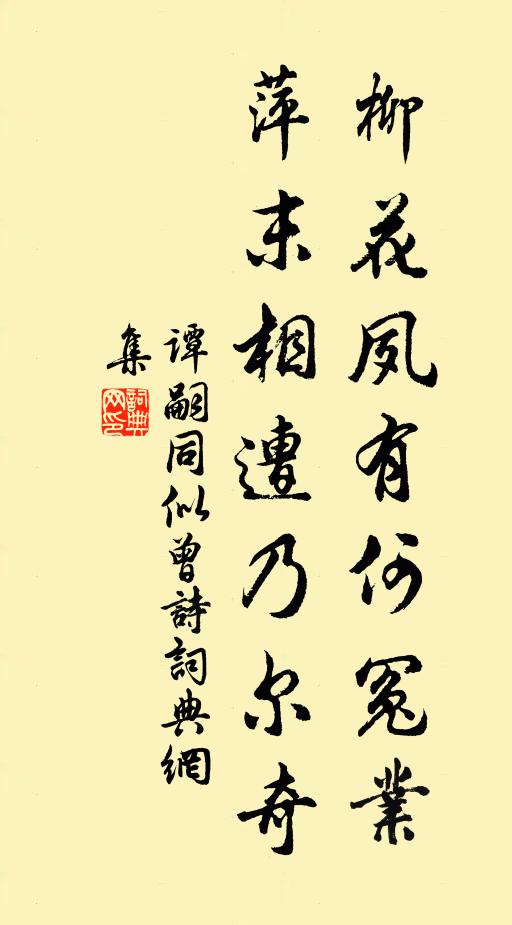 柳花夙有何冤業
萍末相遭乃尔奇
谭嗣同似曾詩詞典網
集
詞典
网印